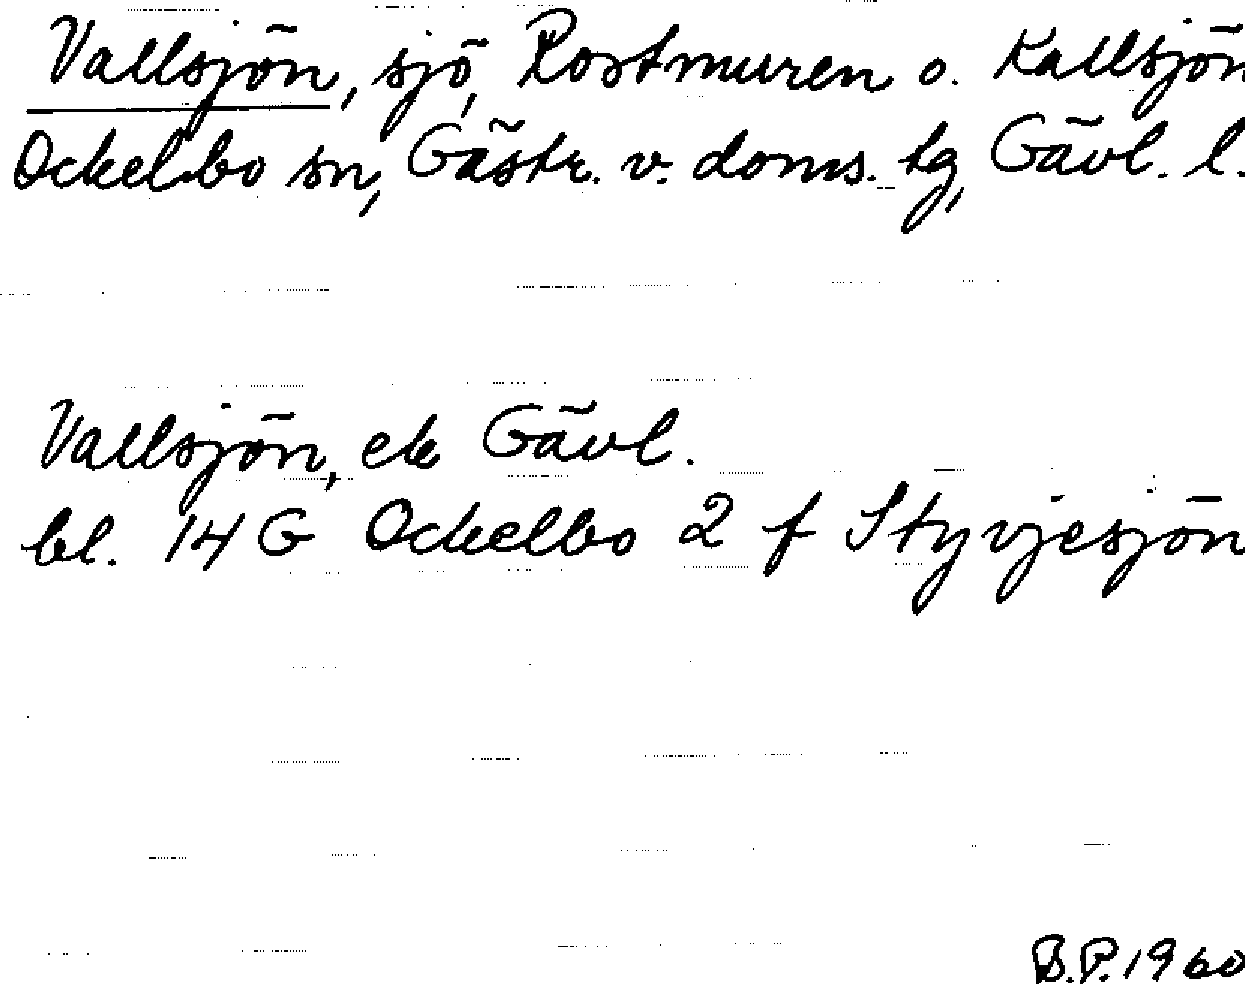 Vallsjön, sjö, Rostmuren o. Kallsjön
Ockelbo sn, Gästr. v. doms. tg, Gävl. l.
Vallsjön, ek Gävl.
bl. 14 G Ockelbo 2 f Styvjesjön
B.P. 1960